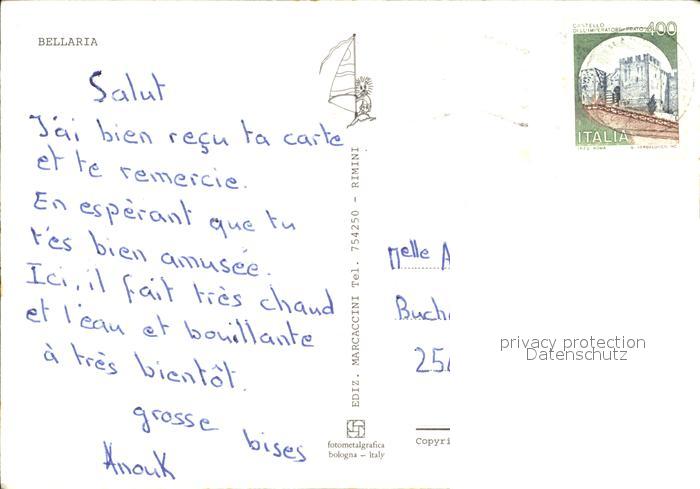 BELLARIA
Salut
J'ai bien reçu ta carte
et te remercie.
En espérant que tu
t'es bien amusée.
Ici, il fait très chaud
et l'eau et bouillante
à très bientôt.
grosse bises
Anouk
EDIZ. MARCACCINI Tel. 754250 - RIMINI
fotometalgrafica
bologna - italy
CASTELLO
DELL'IMPERATORE PRATO 400
ITALIA
Melle A
Buch
25
privacy protection
Datenschutz
Copyri